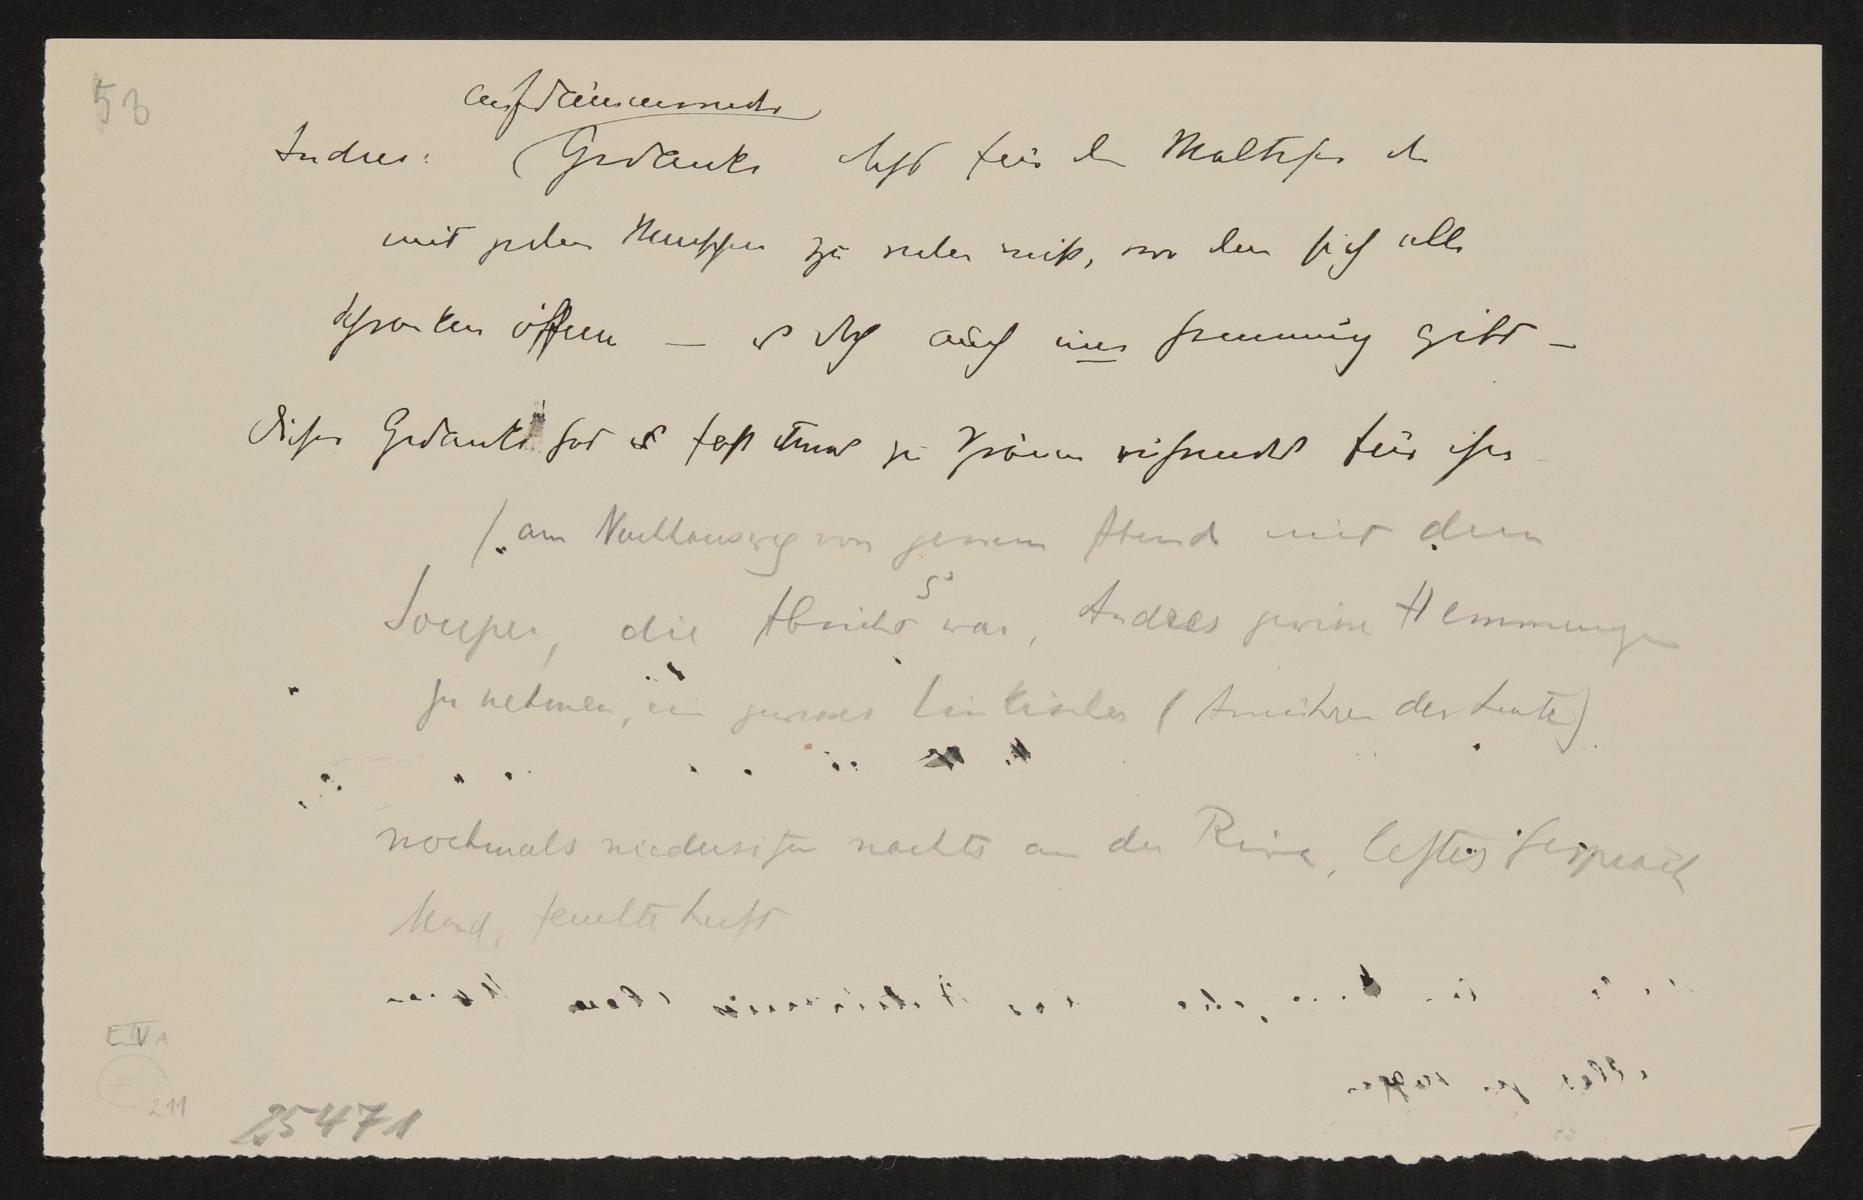 53
aufdämmernder
Andres: (Gedanke dass für den Malteser der
mit jedem Menschen zu reden weiss, vor dem sich alle
Schranken öffnen — es doch auch eine Hemmung gibt —
dieser Gedanke hat es fast etwas zu Thränen rührendes für ihn
(am Nachhausweg von jenem Abend mit dem
Souper, die Absicht S's war, Andres gewisse Hemmungen
zu nehmen, ein gewisses Linkisches (Anrühren der Leute)
nochmals niedersitzen nachts an der Riva, letztes Gespräch
Mond, feuchte Luft
E IV A
211
25471